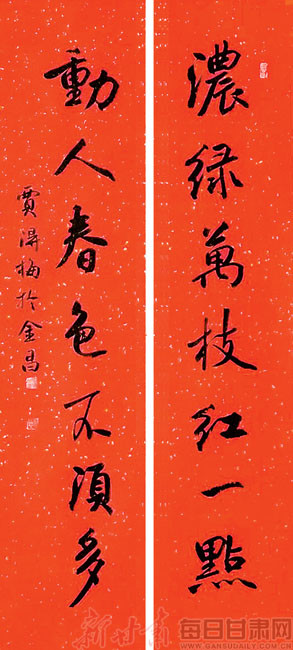 濃緑萬枝紅一點
動人春色不須多
賈得梅於金昌
新甘肃
每日甘肃网
WWW.GANSUDAILY.COM.CN